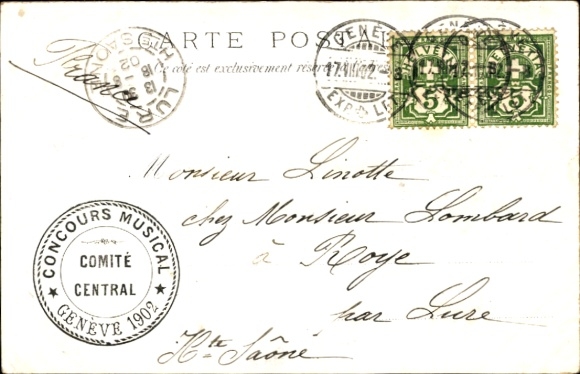 CARTE POSTALE
Ce côté est exclusivement réservé
France
LURE
Hte SAÔNE
GENÈVE
17.VIII.02
EXP. LETT.
HELVETIA
5
HELVETIA
5
Monsieur Linotte
chez Monsieur Lombard
à Roye
par Lure
Hte Saône
CONCOURS MUSICAL
COMITÉ
CENTRAL
GENÈVE 1902